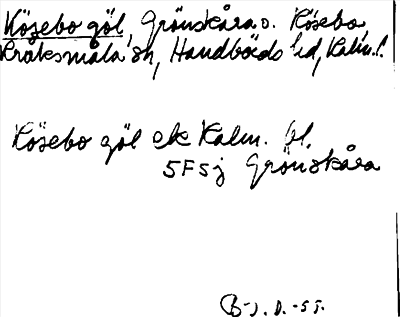 Kösebo göl, Grönskåra o. Kösebo,
Kråksmåla sn, Handbörds hd, Kalm. l.
Kösebo göl ek Kalm. bl.
5F5j Grönskåra
B-j. D. -55.